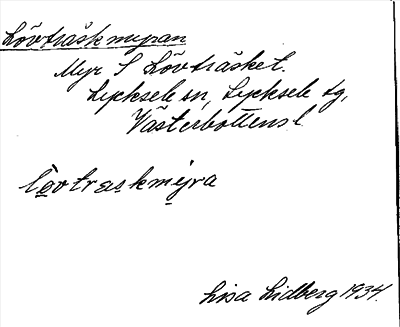 Lövträskmyran
Myr S Lövträsket.
Lycksele sn, Lycksele tg,
Västerbottens l.
lo̲vtra̲skmy̲ra
Lisa Lidberg 1934.